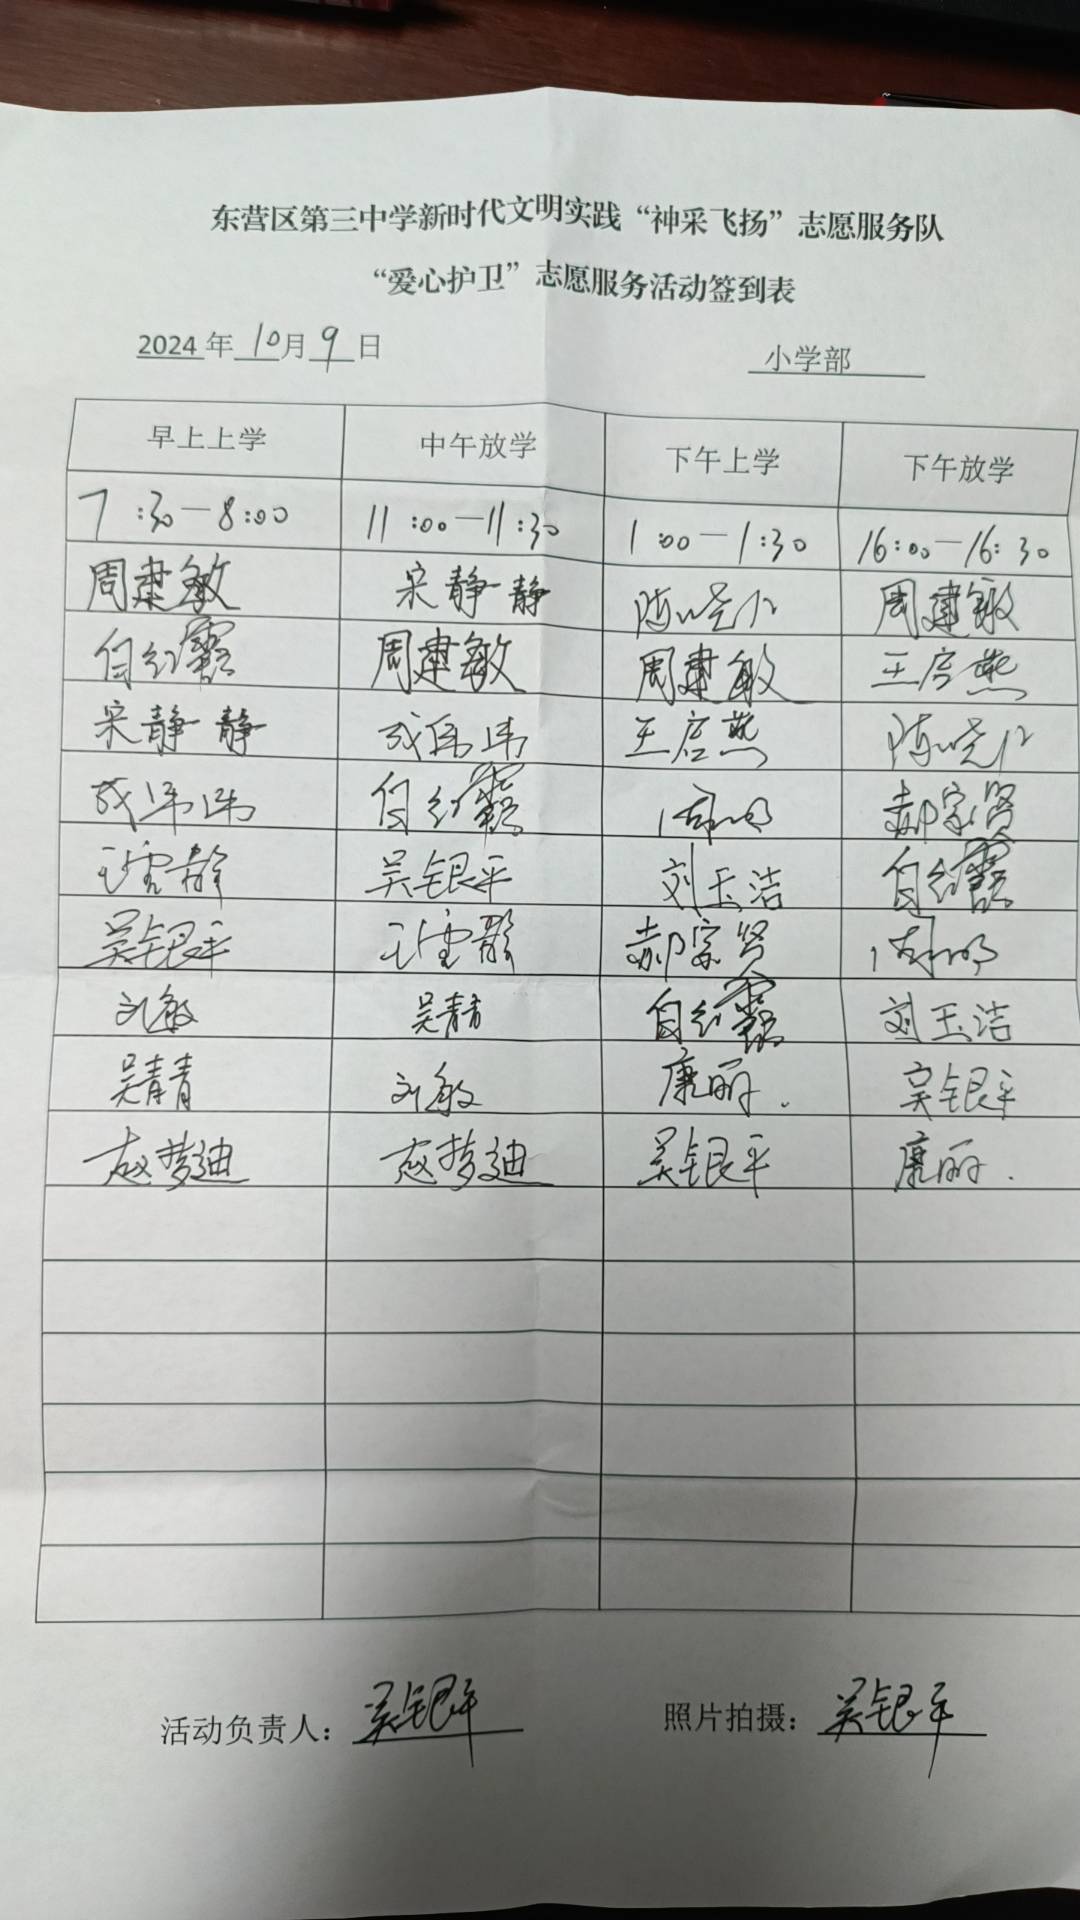 东营区第三中学新时代文明实践“神采飞扬”志愿服务队
“爱心护卫”志愿服务活动签到表
2024年10月9日 小学部
早上上学 中午放学 下午上学 下午放学
7:30—8:00 11:00—11:30 1:00—1:30 16:00—16:30
周建敏 宋静静 陈晓 周建敏
周建敏 周建敏 王启燕
宋静静 成伟伟 王启燕 陈晓
成伟伟 郝宗贤
吴银平 刘玉洁
吴银平 郝宗贤
刘敏 吴青青 刘玉洁
吴青青 刘敏 康丽. 吴银平
赵梦迪 赵梦迪 吴银平 康丽.
活动负责人：吴银平 照片拍摄：吴银平